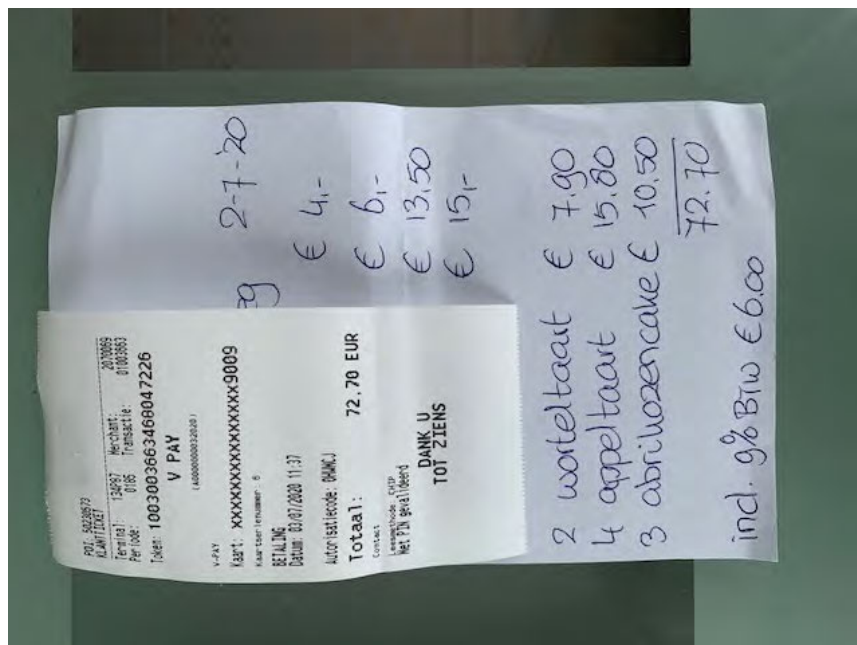 POI: 50230573
KLANTTICKET
Terminal: 134P97 Merchant: 2070069
Periode: 0185 Transactie: 01003663
Token: 1003003663468047226
V PAY
(A0000000032020)
V-PAY
Kaart: XXXXXXXXXXXXXXX9009
Kaartserienummer: 6
BETALING
Datum: 03/07/2020 11:37
Autorisatiecode: 0HWNCJ
Totaal: 72.70 EUR
Contact
Leesmethode CHIP
Met PIN gevalideerd
DANK U
TOT ZIENS
2-7-'20
€ 4,-
€ 6,-
€ 13,50
€ 15,-
2 worteltaart € 7.90
4 appeltaart € 15.80
3 abrikozencake € 10.50
72.70
incl. 9% BTW €6.00